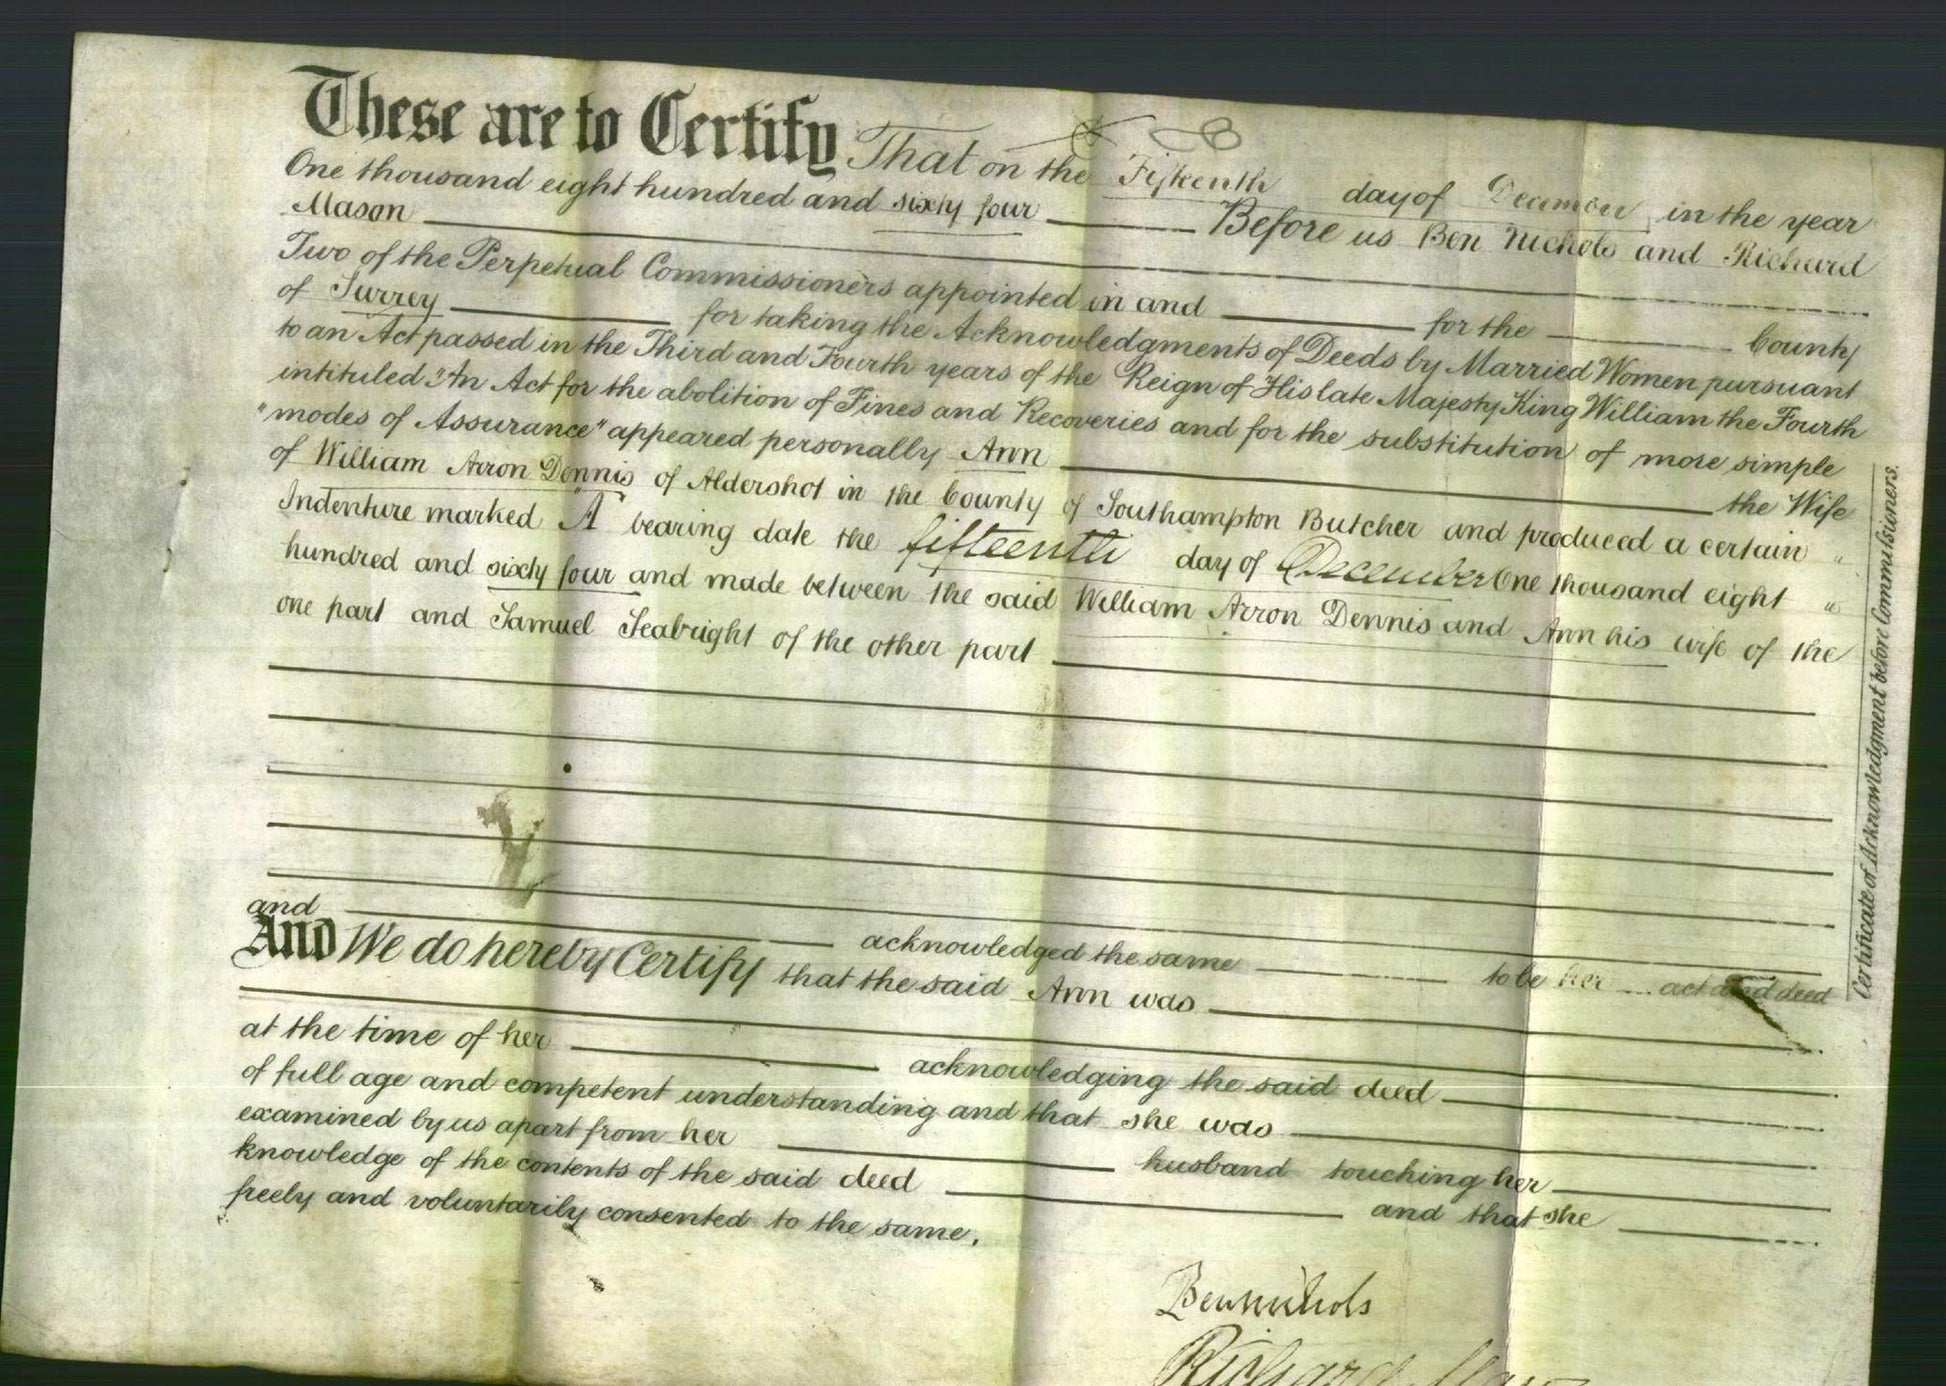 These are to Certify That on the Fifteenth day of December in the year
One thousand eight hundred and sixty four Before us Ben Nichols and Richard
Mason
Two of the Perpetual Commissioners appointed in and for the County
of Surrey for taking the Acknowledgments of Deeds by Married Women pursuant
to an Act passed in the Third and Fourth years of the Reign of His late Majesty King William the Fourth
intituled "An Act for the abolition of Fines and Recoveries and for the substitution of more simple
"modes of Assurance" appeared personally Ann the Wife
of William Arron Dennis of Aldershot in the County of Southampton Butcher and produced a certain "
Indenture marked A bearing date the fifteenth day of December One thousand eight "
hundred and sixty four and made between the said William Arron Dennis and Ann his wife of the
one part and Samuel Seabright of the other part
and acknowledged the same to be her act and deed
And We do hereby Certify that the said Ann was
at the time of her acknowledging the said deed
of full age and competent understanding and that she was
examined by us apart from her husband touching her
knowledge of the contents of the said deed and that she
freely and voluntarily consented to the same.
Ben Nichols
Richard Mason
Certificate of Acknowledgment before Commissioners.